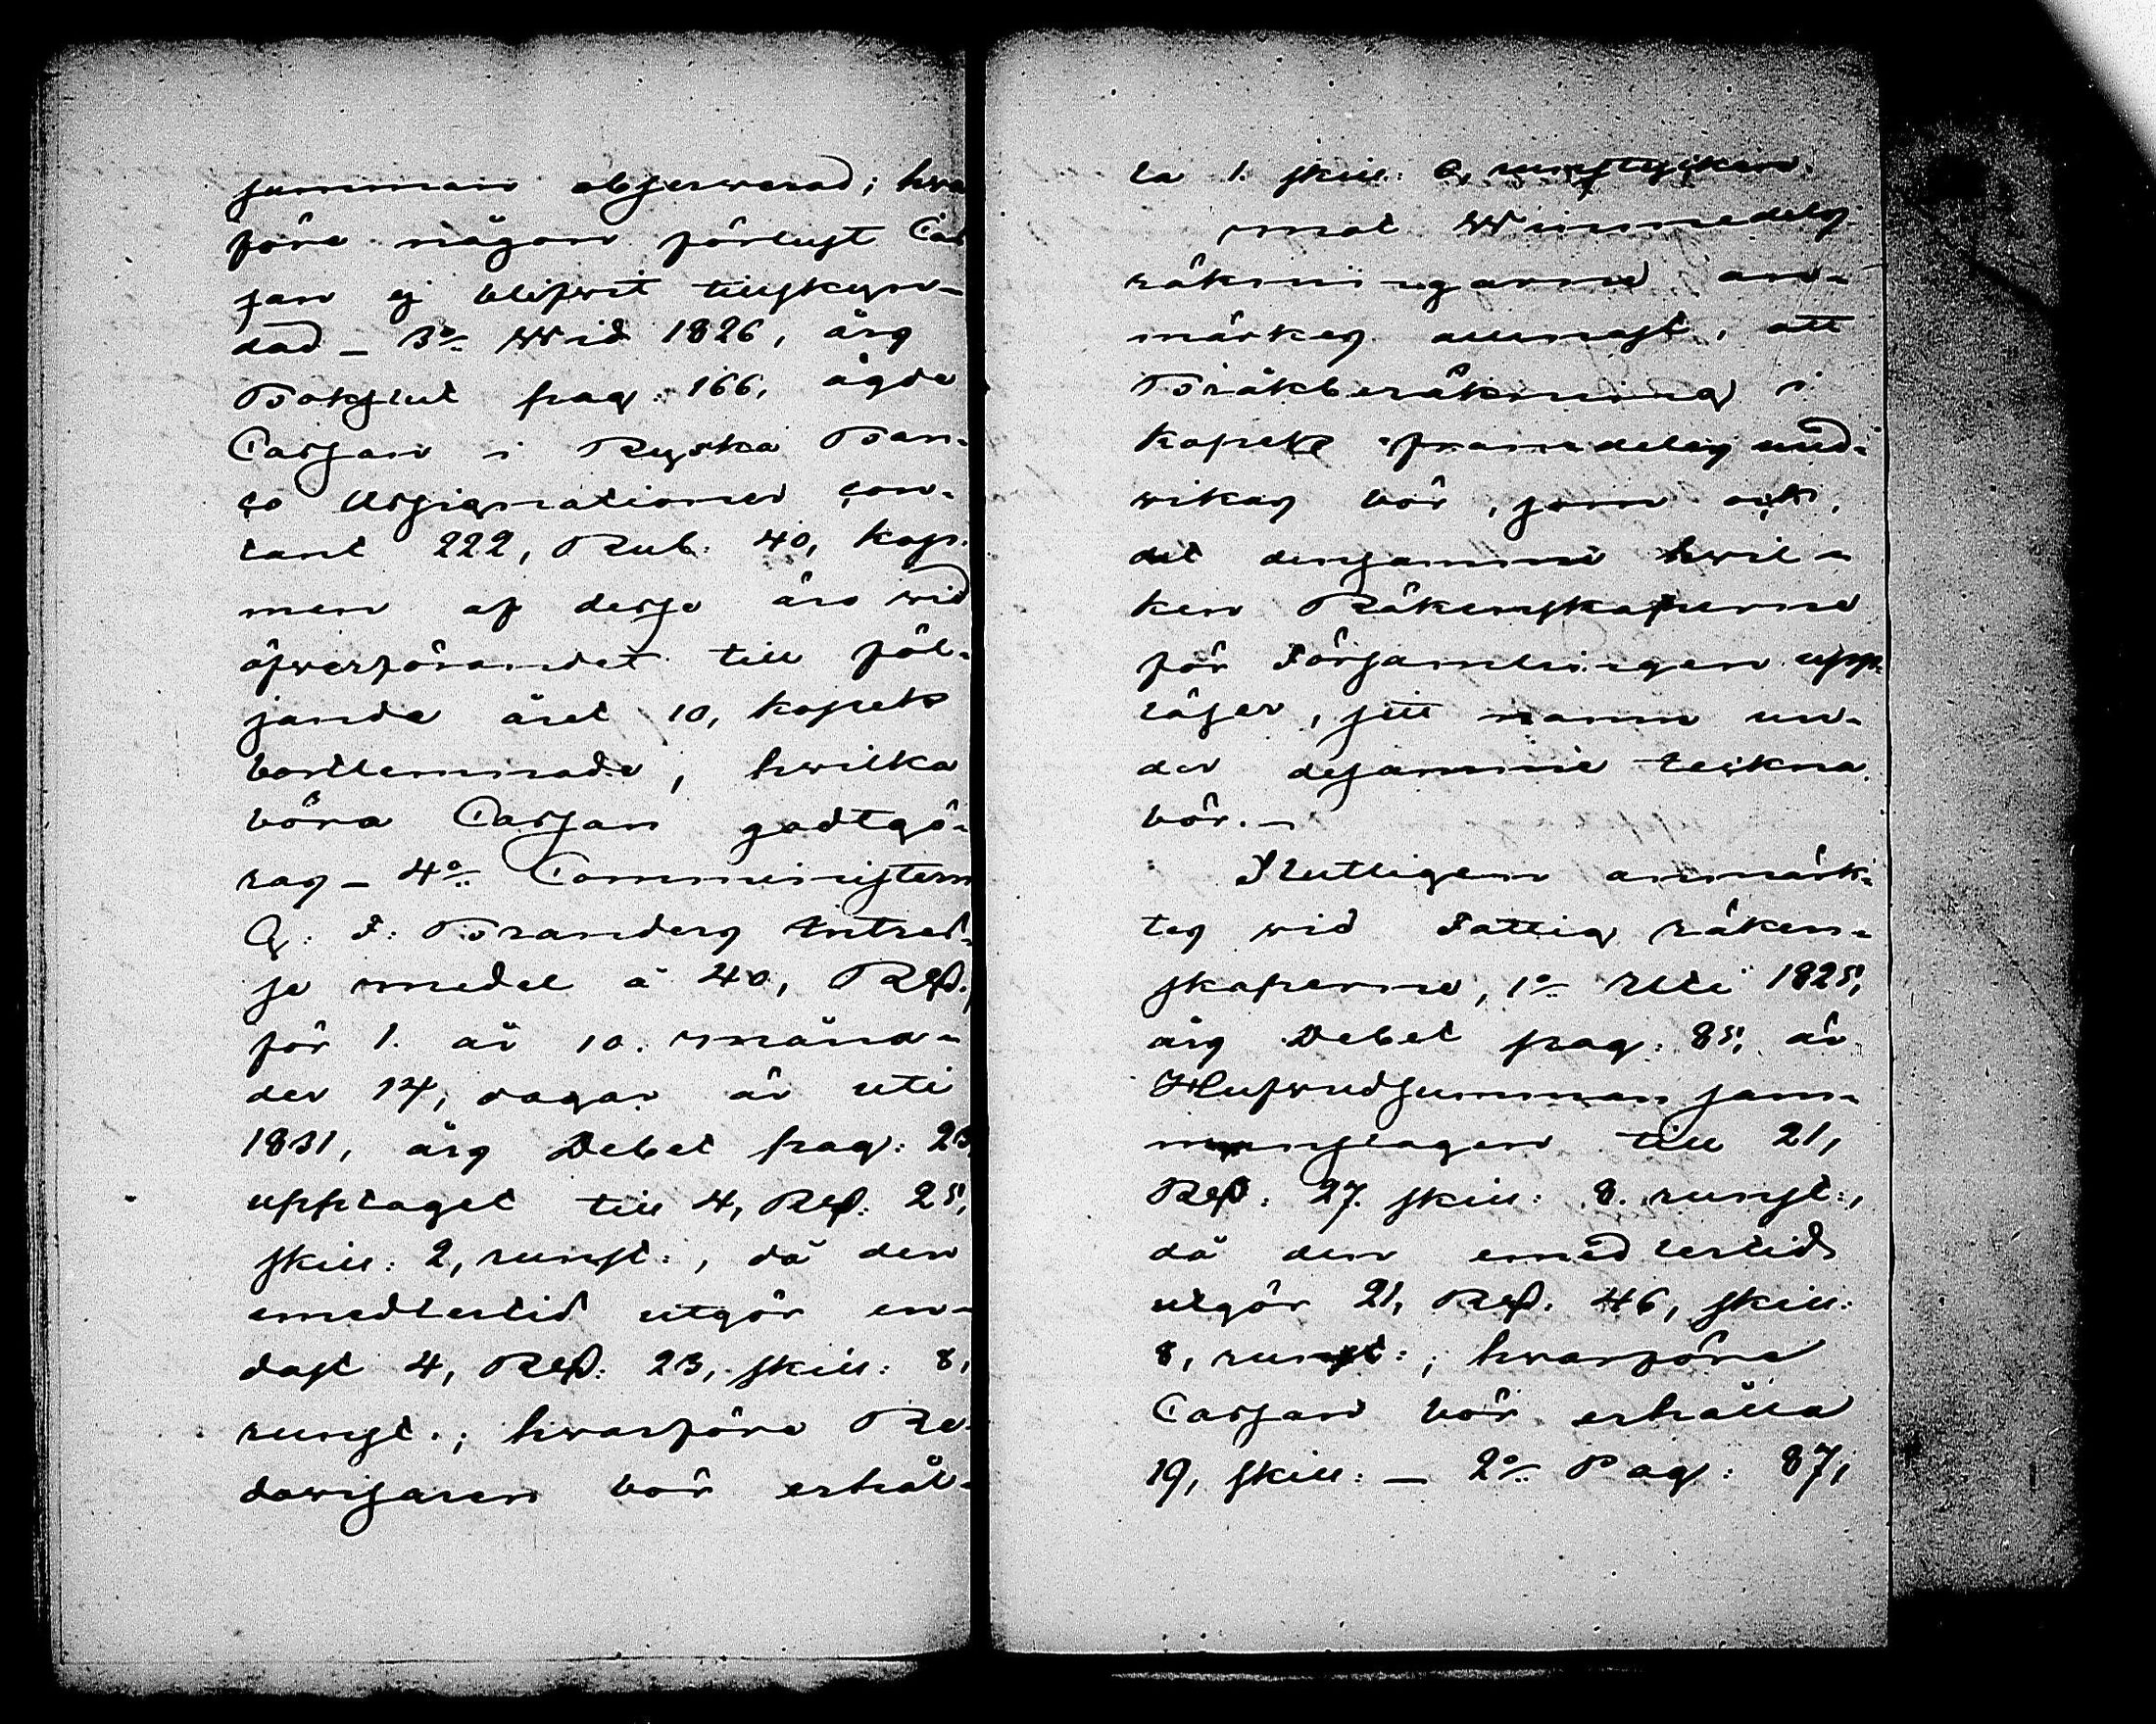 summan observerad; hva
före någon förlust Cas
san ej blifvit tillskyn-
dad – 3:o Wid 1826, års
Bokslut pag: 166, ägde
Cassan i Ryska Ban-
co Assignationer con-
tant 222, Rub: 40, kop:
men af desse äro vid
öfverförandet till föl-
jande året 10, kopek
bortlemnade, hvilka
böra Cassan godtgö-
ras – 4:o Comministern
G: F: Branders Intres-
se medel à 40, Rd:
för 1. år 10. måna-
der 14, dagar är uti
1831, års Debet pag: 23,
upptaget till 4, Rd: 25,
skill: 2, runst:, då den
emedlertid utgör en-
dast 4, Rd: 23, skill: 8,
runst.; hvarföre Re-
dovisaren bör erhål-
la 1. skill: 6, runstycken.
mot Winmedels
räkningarne an-
märkes allenast, att
Bråkberäkning i
Kopek framdeles und-
vikas bör, som ock,
det densamme hvil-
ken Räkenskaperne
för Församlingen upp-
läser, sitt namn un-
der desamme teckna
bör. –
Slutligen anmärk-
tes vid Fattig räken-
skaperne, 1:o Uti 1825,
års Debet pag: 85, är
Hufvudsumman sam-
manslagen till 21,
Rd: 27. skill: 8. runst:,
då den emedlertid
utgör 21, Rd: 46, skill:
8, runst:; hvarföre
Cassan bör erhålla
19, skill: – 2:o Pag: 87,